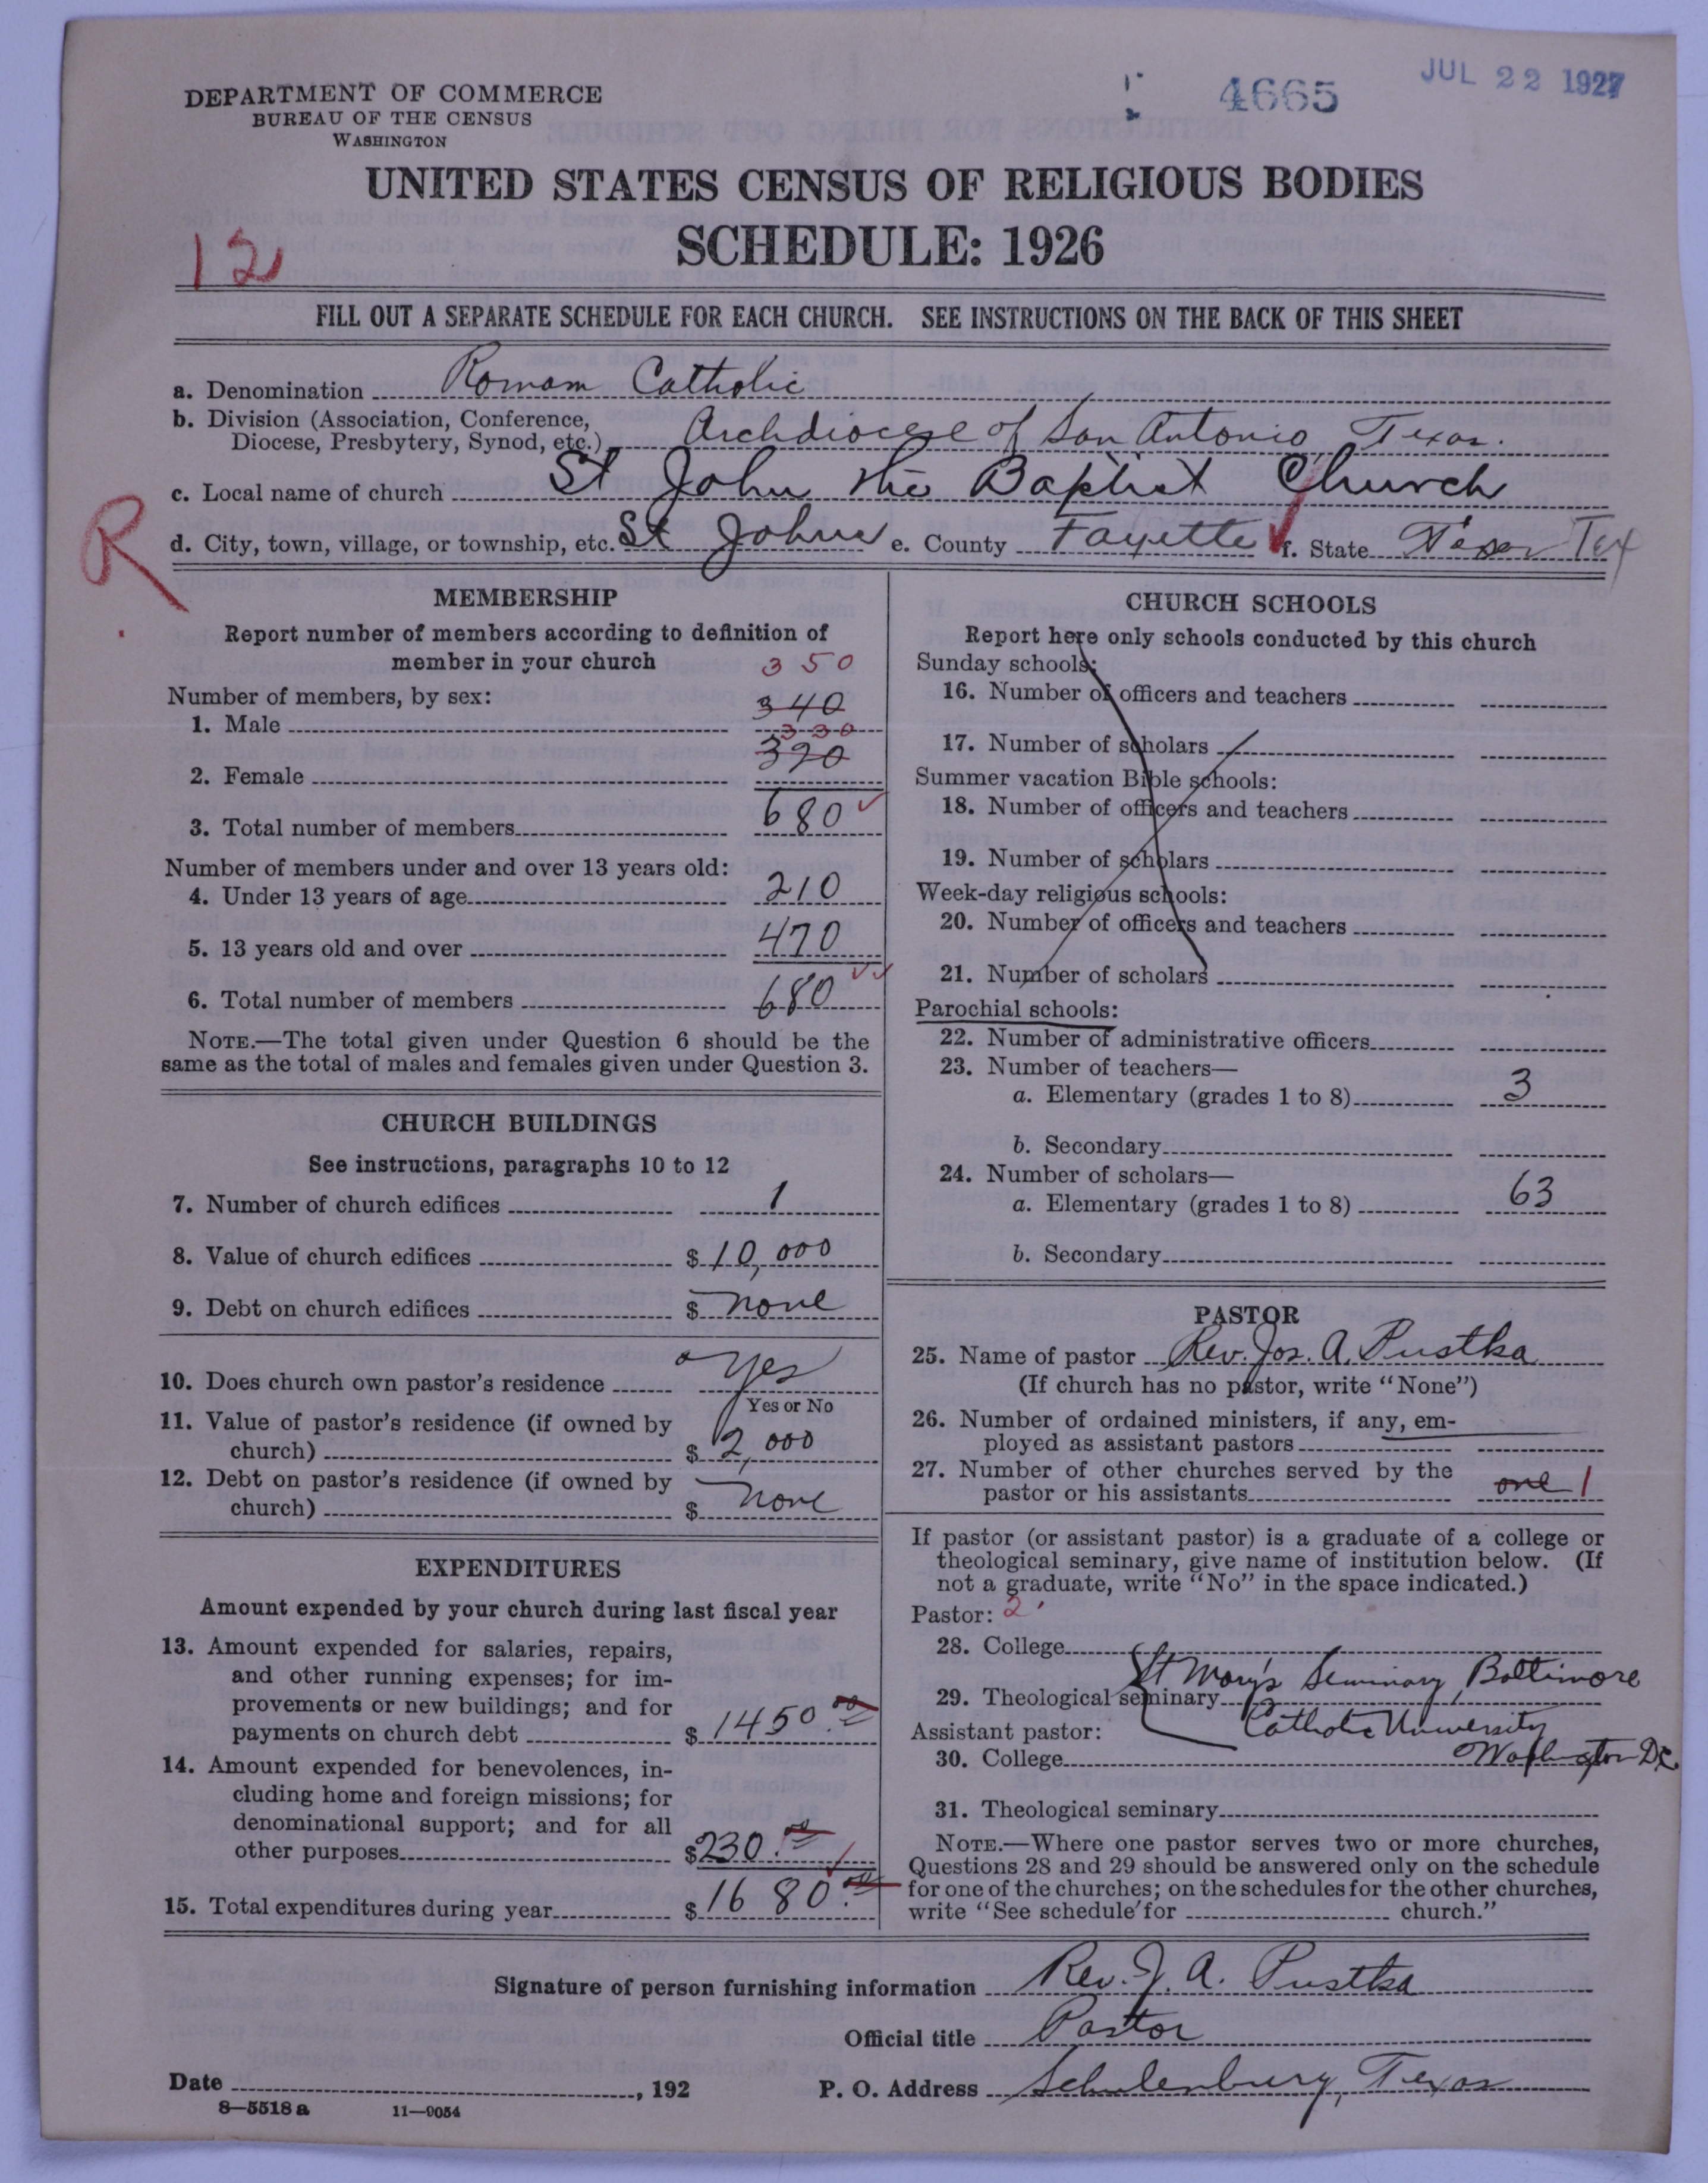 4665
JUL 22 1927
DEPARTMENT OF COMMERCE
BUREAU OF THE CENSUS
WASHINGTON
UNITED STATES CENSUS OF RELIGIOUS BODIES
SCHEDULE: 1926
12
FILL OUT A SEPARATE SCHEDULE FOR EACH CHURCH. SEE INSTRUCTIONS ON THE BACK OF THIS SHEET
a. Denomination Roman Catholic
b. Division (Association, Conference,
Diocese, Presbytery, Synod, etc.) Archdiocese of San Antonio, Texas.
c. Local name of church St John the Baptist Church
R
d. City, town, village, or township, etc. St Johns e. County Fayette f. State Texas Tex
MEMBERSHIP
Report number of members according to definition of
member in your church
350
Number of members, by sex:
1. Male 340
330
2. Female 390
3. Total number of members 680
Number of members under and over 13 years old:
4. Under 13 years of age 210
5. 13 years old and over 470
6. Total number of members 680
NOTE.—The total given under Question 6 should be the
same as the total of males and females given under Question 3.
CHURCH BUILDINGS
See instructions, paragraphs 10 to 12
7. Number of church edifices 1
8. Value of church edifices $ 10,000
9. Debt on church edifices $ none
10. Does church own pastor's residence Yes
Yes or No
11. Value of pastor's residence (if owned by
church) $ 2,000
12. Debt on pastor's residence (if owned by
church) $ none
EXPENDITURES
Amount expended by your church during last fiscal year
13. Amount expended for salaries, repairs,
and other running expenses; for im-
provements or new buildings; and for
payments on church debt $ 1450.00
14. Amount expended for benevolences, in-
cluding home and foreign missions; for
denominational support; and for all
other purposes $ 230.00
15. Total expenditures during year $ 1680.00
CHURCH SCHOOLS
Report here only schools conducted by this church
Sunday schools:
16. Number of officers and teachers
17. Number of scholars
Summer vacation Bible schools:
18. Number of officers and teachers
19. Number of scholars
Week-day religious schools:
20. Number of officers and teachers
21. Number of scholars
Parochial schools:
22. Number of administrative officers
23. Number of teachers—
a. Elementary (grades 1 to 8) 3
b. Secondary
24. Number of scholars—
a. Elementary (grades 1 to 8) 63
b. Secondary
PASTOR
25. Name of pastor Rev. Jos. A. Pustka
(If church has no pastor, write "None")
26. Number of ordained ministers, if any, em-
ployed as assistant pastors
27. Number of other churches served by the
pastor or his assistants one 1
If pastor (or assistant pastor) is a graduate of a college or
theological seminary, give name of institution below. (If
not a graduate, write "No" in the space indicated.)
Pastor: 2
28. College
St Mary's Seminary, Baltimore
29. Theological seminary
Assistant pastor: Catholic University
30. College Washington D.C.
31. Theological seminary
NOTE.—Where one pastor serves two or more churches,
Questions 28 and 29 should be answered only on the schedule
for one of the churches; on the schedules for the other churches,
write "See schedule for church."
Signature of person furnishing information Rev. J. A. Pustka
Official title Pastor
Date , 192 P. O. Address Schulenburg, Texas
8—5518 a 11—9054